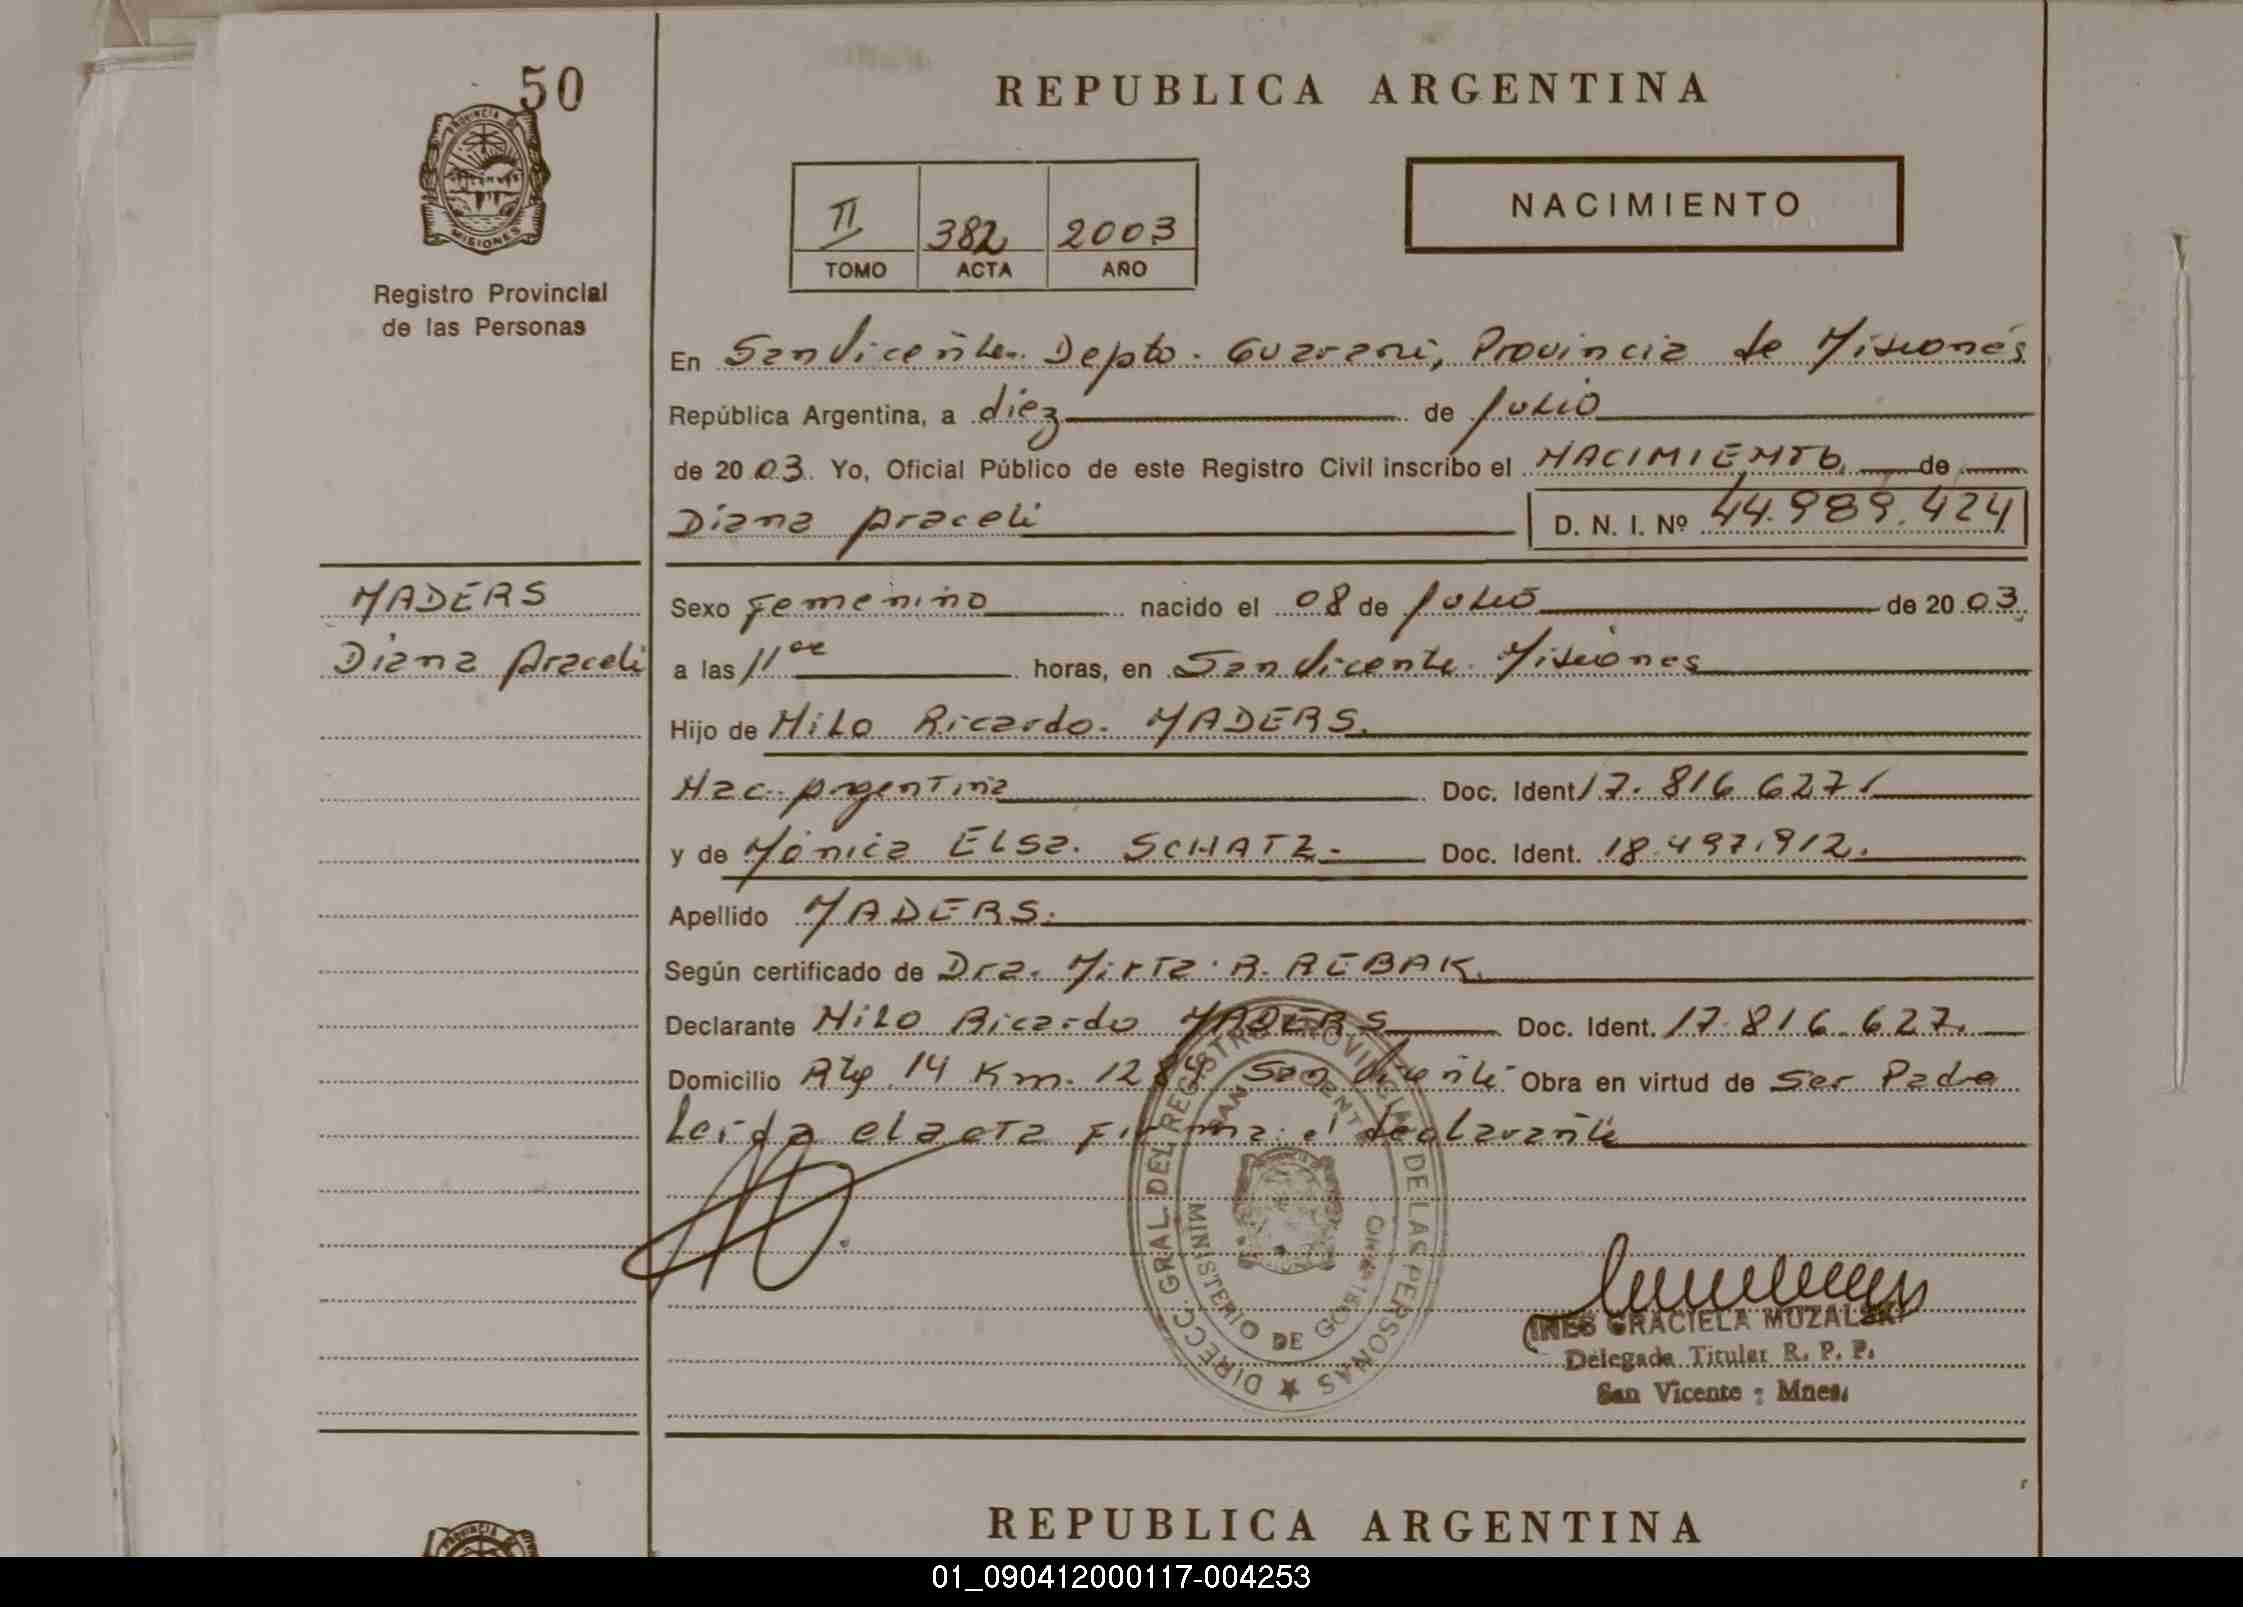 50
REPUBLICA ARGENTINA
PROVINCIA DE
MISIONES
Registro Provincial
de las Personas
II 382 2003
TOMO ACTA AÑO
NACIMIENTO
En San Vicente. Depto. Guaraní, Provincia de Misiones
República Argentina, a diez de Julio
de 20 03. Yo, Oficial Público de este Registro Civil inscribo el NACIMIENTO de
Diana Araceli D. N. I. Nº 44.989.424
MADERS
Diana Araceli
Sexo Femenino nacido el 08 de Julio de 20 03
a las 11 horas, en San Vicente. Misiones
Hijo de Nilo Ricardo. MADERS.
Nac. Argentina Doc. Ident. 17.816.627
y de Mónica Elsa. SCHATZ.- Doc. Ident. 18.497.912.
Apellido MADERS.
Según certificado de Dra. Mirta. R. REBAK.
Declarante Nilo Ricardo MADERS Doc. Ident. 17.816.627.
Domicilio 14 Km. San Vicente Obra en virtud de Ser Padre
Leida el acta firma el declarante
DIRECC. GRAL. DEL REGISTRO PROVINCIAL DE LAS PERSONAS
SAN VICENTE
MINISTERIO DE GOBIERNO
INES GRACIELA MUZALSKI
Delegada Titular R. P. P.
San Vicente - Mnes.
REPUBLICA ARGENTINA
01_090412000117-004253